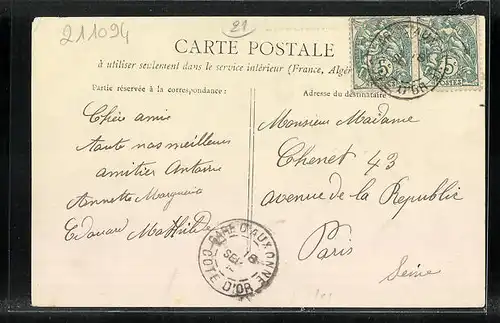 211094
21
CARTE POSTALE
à utiliser seulement dans le service intérieur (France, Algér
Partie réservée à la correspondance:
Adresse du destinataire
Chers amis
toute nos meilleurs
amitier Antoine
Annette Marguerite
Edouard Mathilde
Monsieur Madame
Chenet 43
avenue de la Republic
Paris
Seine
GARE D'AUXONNE
18
SEPT
COTE D'OR